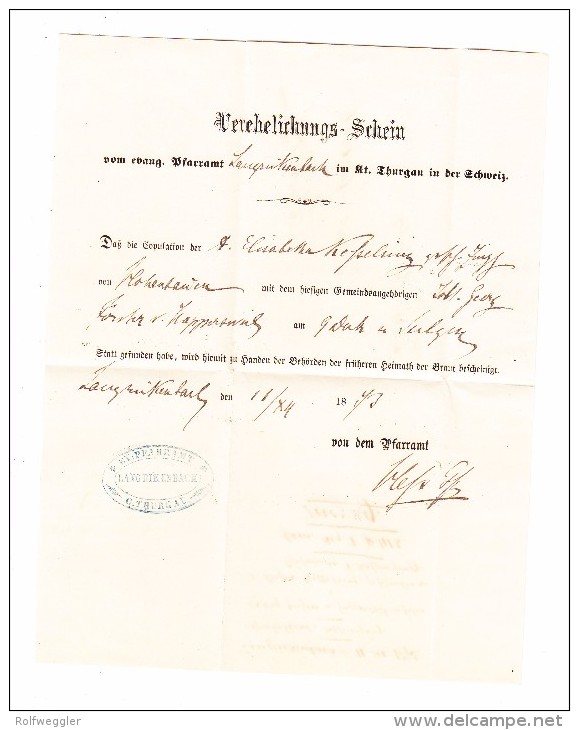 Verehelichungs-Schein
vom evang. Pfarramt Langrikenbach im Kt. Thurgau in der Schweiz.
Daß die Copulation der A. Elisabetha Kesselring
von Hohentannen mit dem hiesigen Gemeindsangehörigen Joh. Georg
Forster v. Happerswil am 9 Dech in Sulgen
Statt gefunden habe, wird hiemit zu Handen der Behörden der früheren Heimath der Braut bescheinigt.
Langrikenbach, den 11/XII 1873
von dem Pfarramt
EV. PFARRAMT
LANGRIKENBACH
C. THURGAU
Rolfweggler
www.delcampe.net